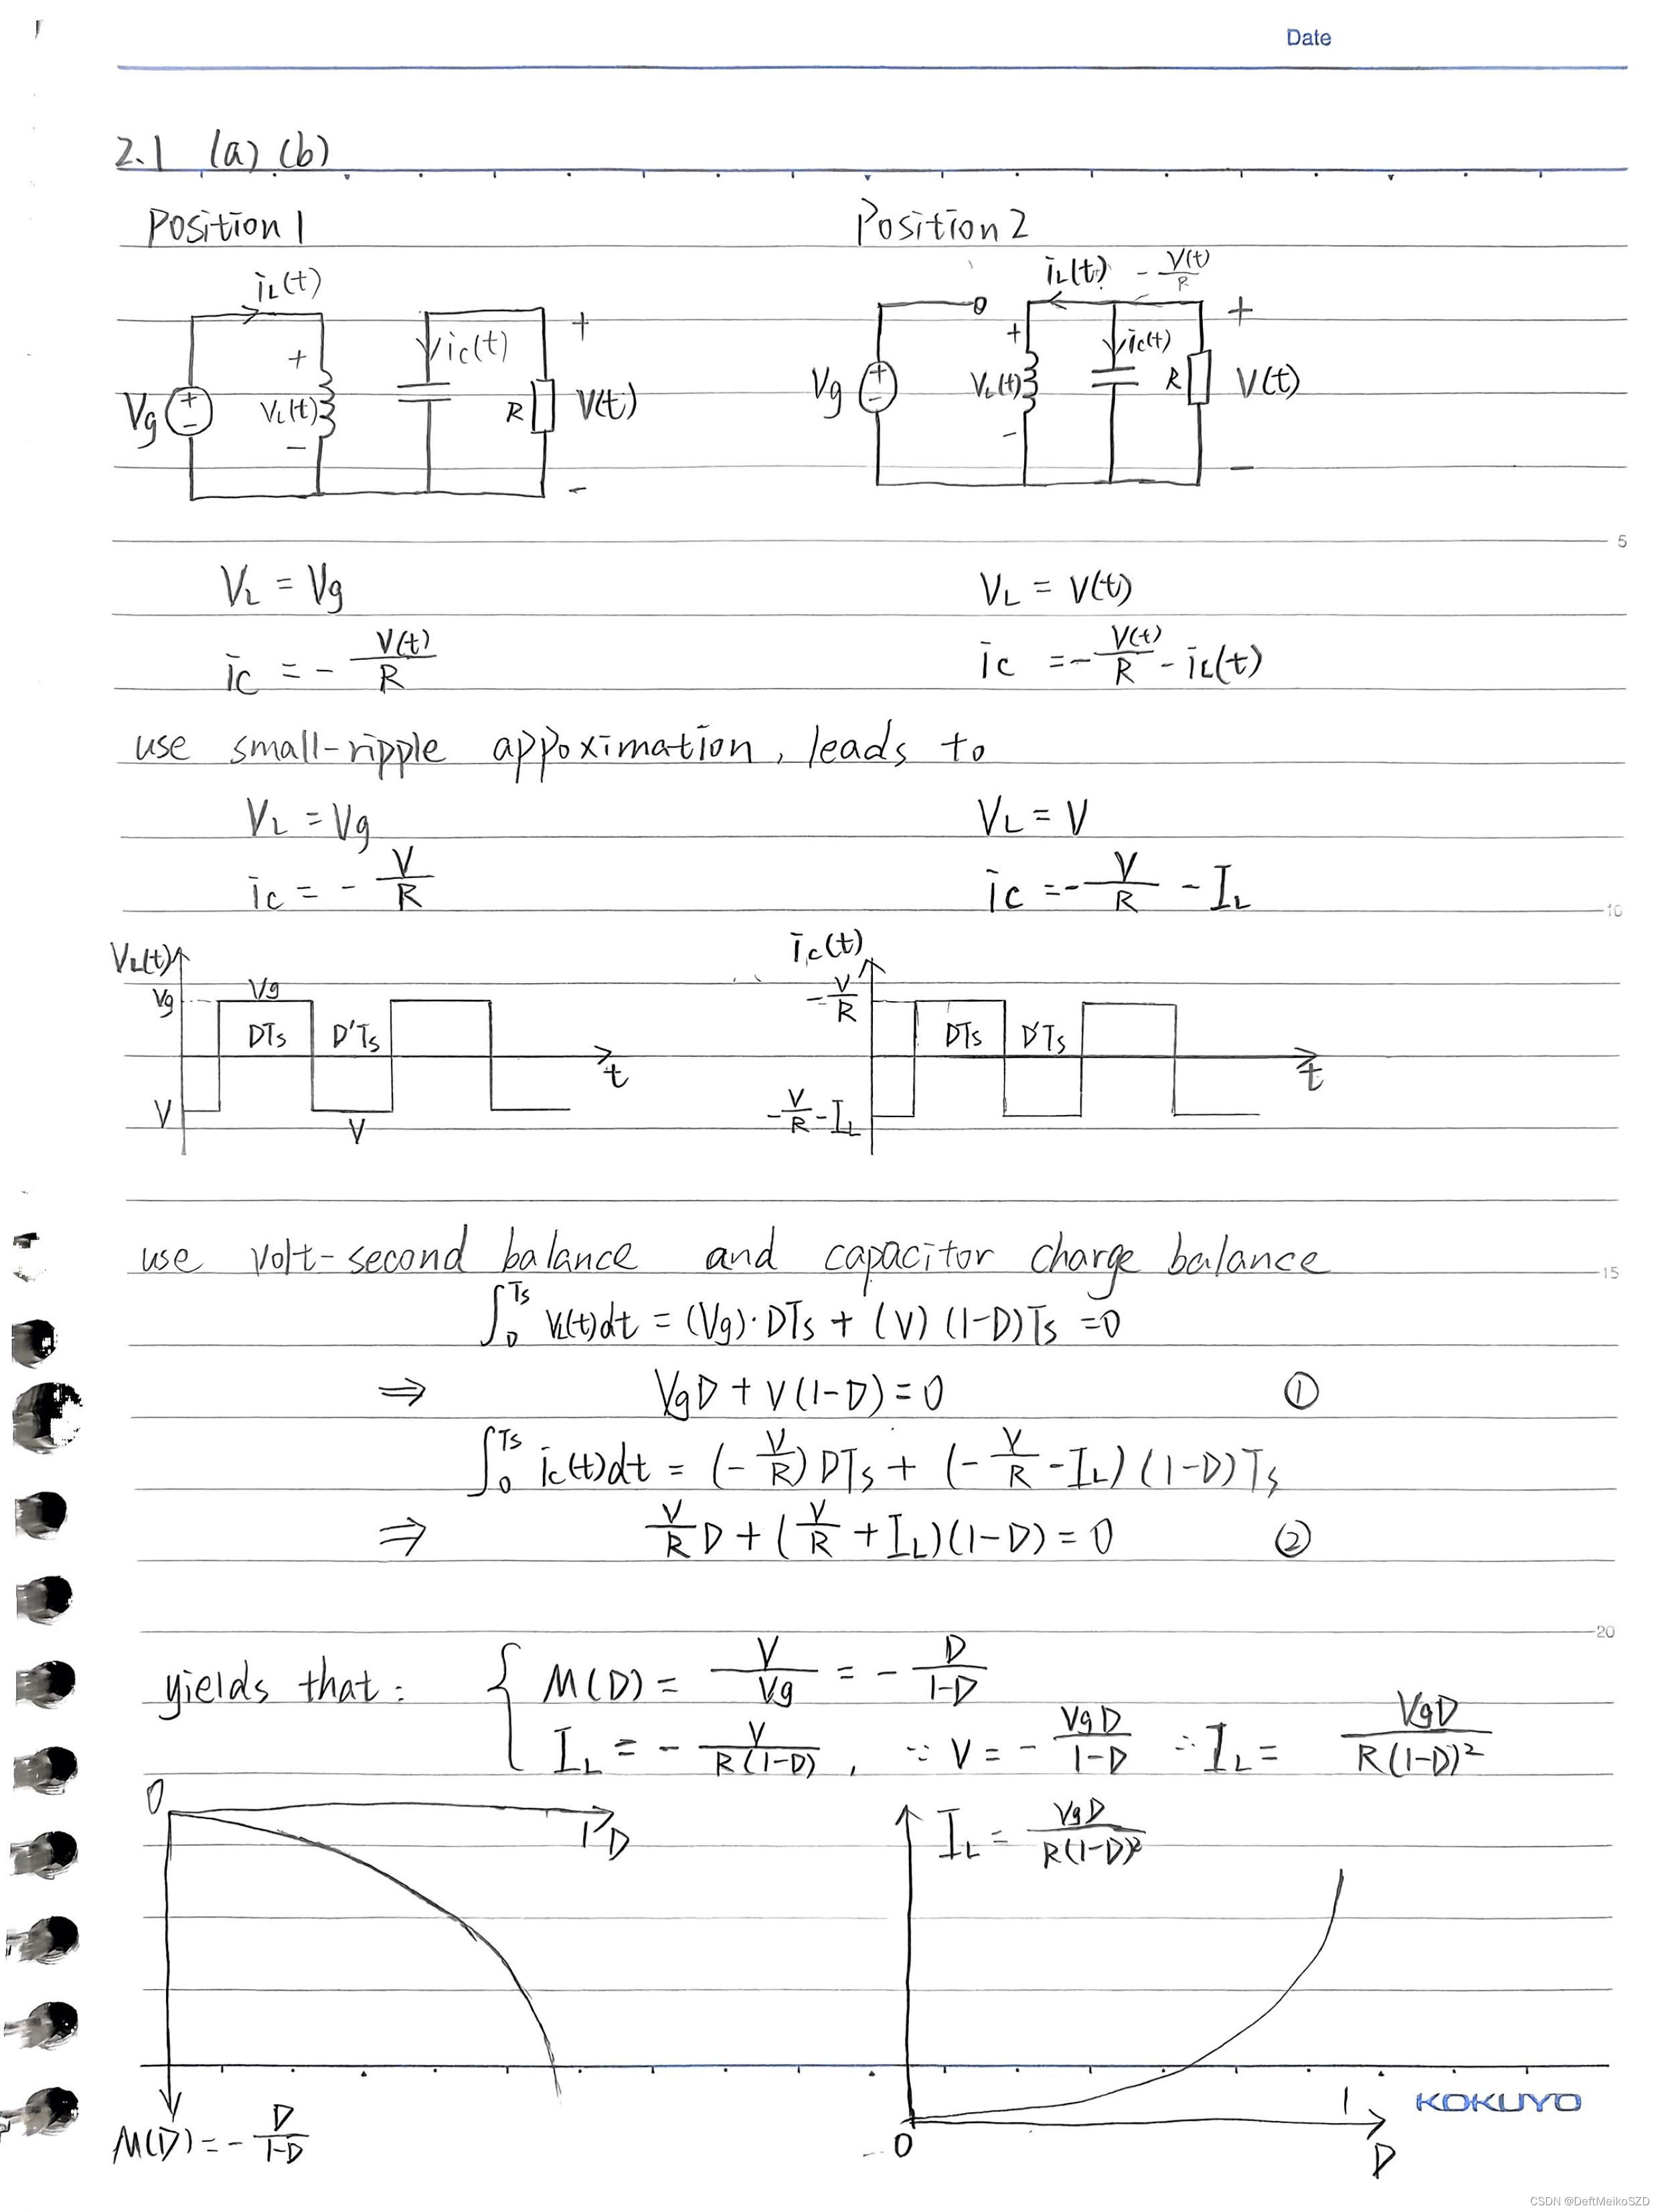 Date
2.1 (a) (b)
Position 1
Position 2
iL(t)
ic(t)
+
+
Vg
+
−
VL(t)
−
R
V(t)
−
iL(t) - V(t)/R
+
+
ic(t)
Vg
+
−
VL(t)
−
R
V(t)
−
5
VL = Vg
VL = V(t)
ic = - V(t)/R
ic = - V(t)/R - iL(t)
use small-ripple appoximation, leads to
VL = Vg
VL = V
ic = - V/R
ic = - V/R - IL
10
VL(t)
Vg
Vg
DTs
D'Ts
t
V
V
ic(t)
- V/R
DTs
D'Ts
t
- V/R - IL
use volt-second balance and capacitor charge balance
15
∫0^Ts VL(t)dt = (Vg)·DTs + (V)(1-D)Ts = 0
⇒ VgD + V(1-D) = 0 ①
∫0^Ts ic(t)dt = (- V/R) DTs + (- V/R - IL)(1-D)Ts
⇒ V/R D + (V/R + IL)(1-D) = 0 ②
20
yields that: { M(D) = V/Vg = - D/(1-D)
IL = - V/(R(1-D)), ∵ V = - VgD/(1-D) ∴ IL = VgD/(R(1-D)²)
0
1
D
M(D) = - D/(1-D)
IL = VgD/(R(1-D)²)
0
1
D
KOKUYO
CSDN @DeftMeikoSZD